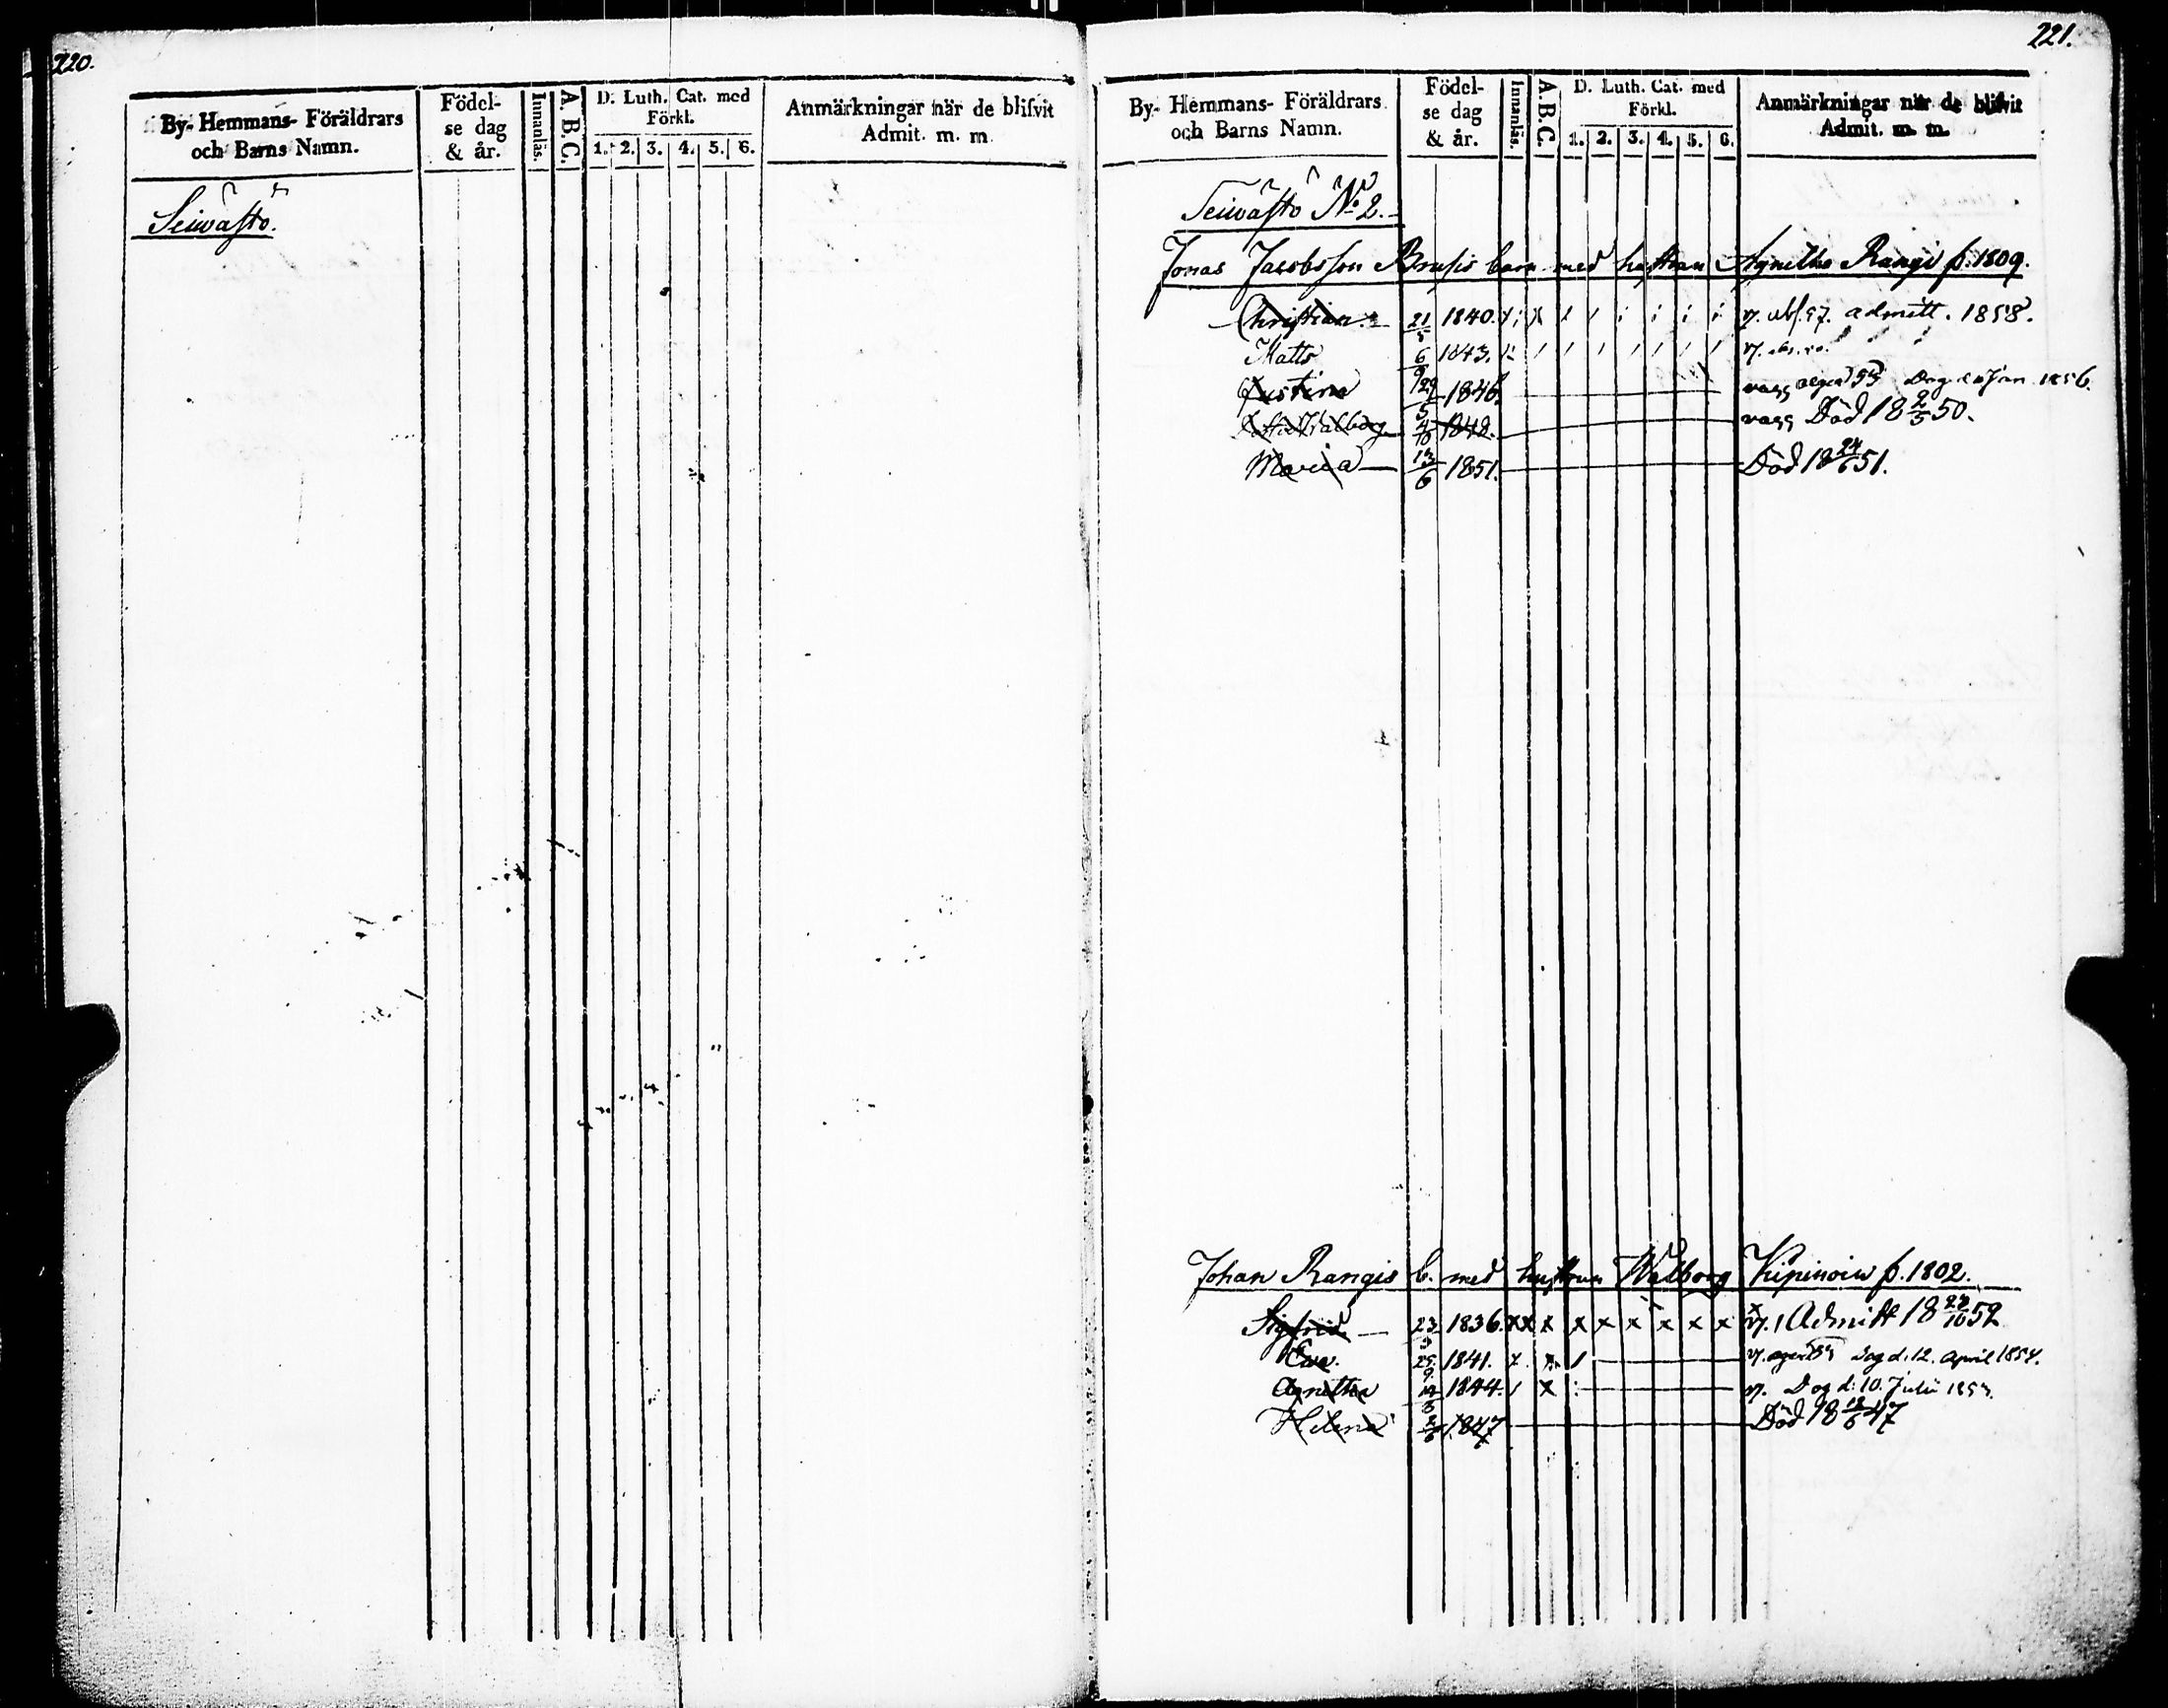 220.
By- Hemmans- Föräldrars och Barns Namn.
Födel- se dag & år.
Innanläs.
A. B. C.
D. Luth. Cat. med Förkl.
1. 2. 3. 4. 5. 6.
Anmärkningar när de blifvit Admit. m. m.
Seiwästö.
221.
By- Hemmans- Föräldrars och Barns Namn.
Födel- se dag & år.
Innanläs.
A. B. C.
D. Luth. Cat. med Förkl.
1. 2. 3. 4. 5. 6.
Anmärkningar när de blifvit Admit. m. m.
Seiwästö No 2.
Jonas Jacobsson Brusis barn med hustrun Agnetha Rangi f. 1809.
Christian 21 1840. admitt. 1858.
Matts 6/9 1843.
Justina 29/5 1846. vacc Jan. 1856.
Walborg 4/10 1848. vacc Död 18 2/5 50.
Maria 13/6 1851. Död 18 24/6 51.
Johan Rangis b. med hustrun Walborg Kipinoin f. 1802.
Sigfrid 23/3 1836. x x x x x x x x x v. Admitt 18 52
Eva. 25/9 1841. x x Dog d. 12. April 1854.
Agnetha 1844. x v. Dog d: 10. Julii
Helena 2/6 1847 Död 18 47